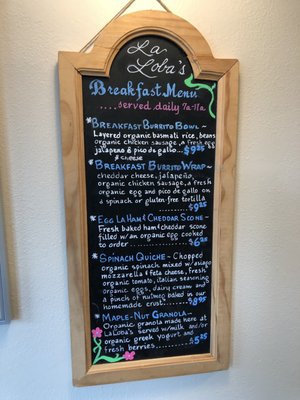 La
Loba's
Breakfast Menu
....served daily 7a-11a
*Breakfast Burrito Bowl ~
Layered organic basmati rice, beans
organic chicken sausage, a fresh egg
jalapeño & pico de gallo...$9.25
& cheese
*Breakfast Burrito Wrap ~
cheddar cheese, jalapeño,
organic chicken sausage, a fresh
organic egg and pico de gallo on
a spinach or gluten-free tortilla
........$9.25
*Egg La Ham & Cheddar Scone ~
Fresh baked ham & cheddar scone
filled w/an organic egg cooked
to order ...............$6.25
*Spinach Quiche ~ Chopped
organic spinach mixed w/asiago
mozzarella & feta cheese, fresh
organic tomato, italian seasoning
organic eggs, dairy cream and
a pinch of nutmeg baked in our
homemade crust........$8.95
*Maple-Nut Granola ~
Organic granola made here at
LaLoba's served w/milk and/or
organic greek yogurt and
fresh berries.........$5.25